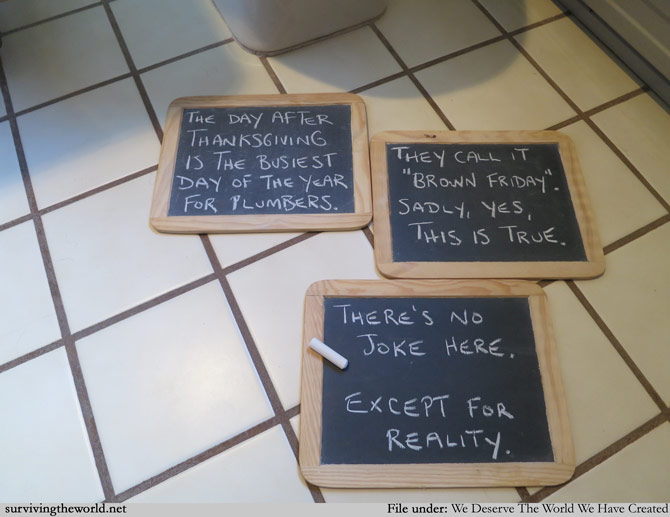 THE DAY AFTER
THANKSGIVING
IS THE BUSIEST
DAY OF THE YEAR
FOR PLUMBERS.
THEY CALL IT
"BROWN FRIDAY".
SADLY, YES,
THIS IS TRUE.
THERE'S NO
JOKE HERE.
EXCEPT FOR
REALITY.
survivingtheworld.net
File under: We Deserve The World We Have Created